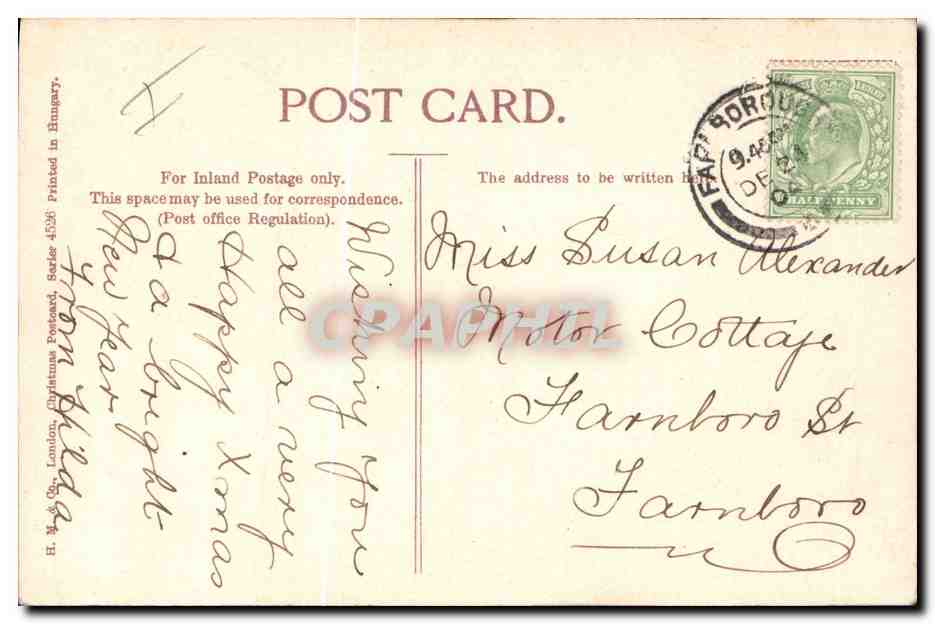 POST CARD.
For Inland Postage only.
This space may be used for correspondence.
(Post office Regulation).
The address to be written here
H. M. & Co., London, Christmas Postcard, Series 4526 Printed in Hungary.
FARNBOROUGH
DE 24
04
HALF PENNY
Wishing you
all a very
Happy Xmas
& a bright
New Year
from Hilda
Miss Susan Alexander
Motor Cottage
Farnboro St
Farnboro
CPAPHIL